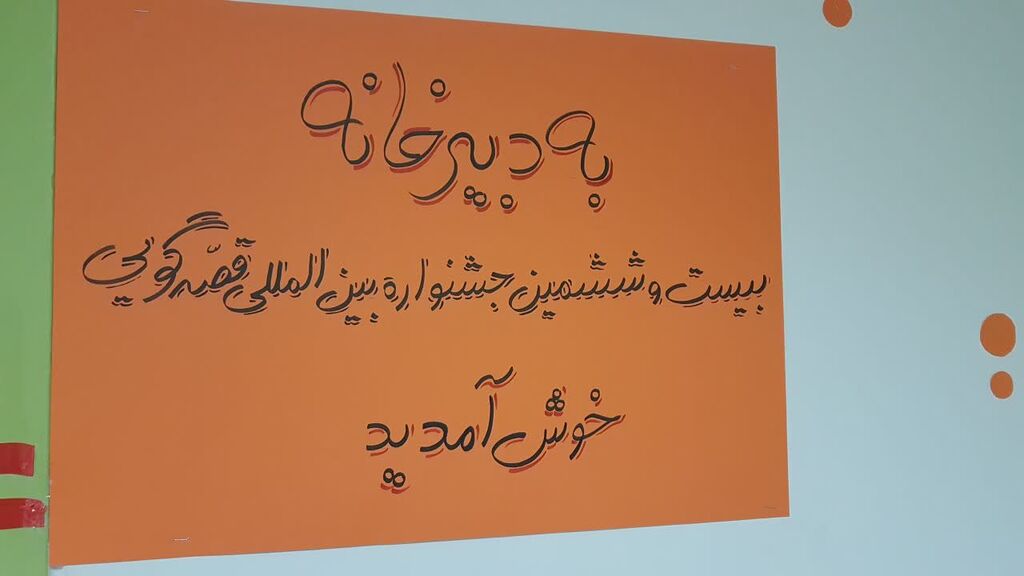 به دبیرخانه
بیست و ششمین جشنواره بین المللی قصّه گویی
خوش آمدید